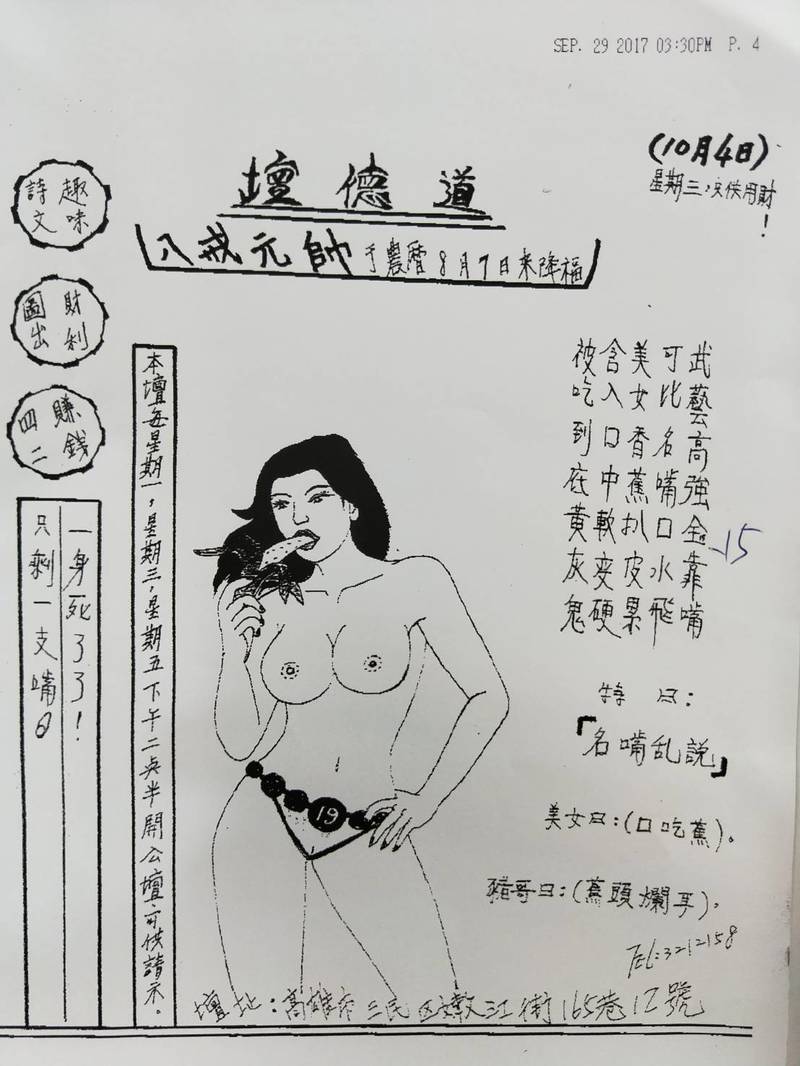 SEP. 29 2017 03:30PM P. 4
(10月4日)
星期三,只供用財!
道德壇
八戒元帥于農曆8月7日来降福
武藝高強全靠嘴
15
可比名嘴口水飛
美女香蕉扒皮累
含入口中軟变硬
被吃到在黃灰鬼
特曰:
「名嘴乱說」
美女曰:(口吃蕉)。
豬哥曰:(蕉頭爛乎)。
TEL:3212158
19
本壇每星期一,星期三,星期五下午二点半開公壇,可供請示。
趣味詩文
財利圖出
賺錢四二
一身死了了!
只剩一支嘴
壇址:高雄市三民区敦江街165巷12號